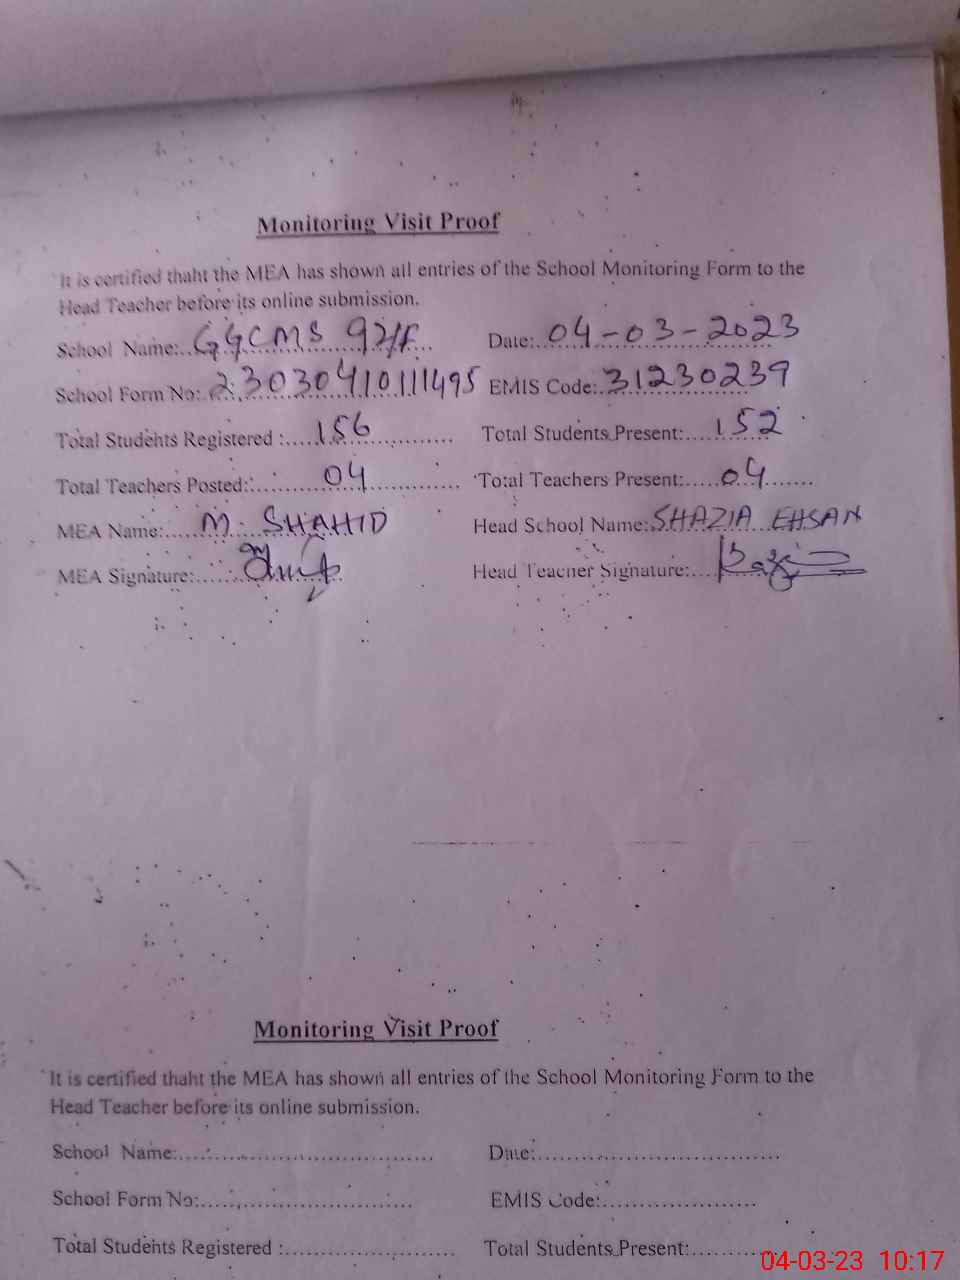 Monitoring Visit Proof
It is certified thaht the MEA has shown all entries of the School Monitoring Form to the
Head Teacher before its online submission.
School Name:..GGCMS 92/F.. Date:..04-03-2023
School Form No:..230304101111495 EMIS Code:.31230239
Total Students Registered :....156............... Total Students Present:....152
Total Teachers Posted:.........04............... Total Teachers Present:.....04.......
MEA Name:.....M. SHAHID Head School Name:SHAZIA EHSAN
MEA Signature:...... Head Teacher Signature:....
Monitoring Visit Proof
It is certified thaht the MEA has shown all entries of the School Monitoring Form to the
Head Teacher before its online submission.
School Name:.................................... Date:..................................
School Form No:.............................. EMIS Code:......................
Total Students Registered :........................ Total Students Present:..........
04-03-23 10:17